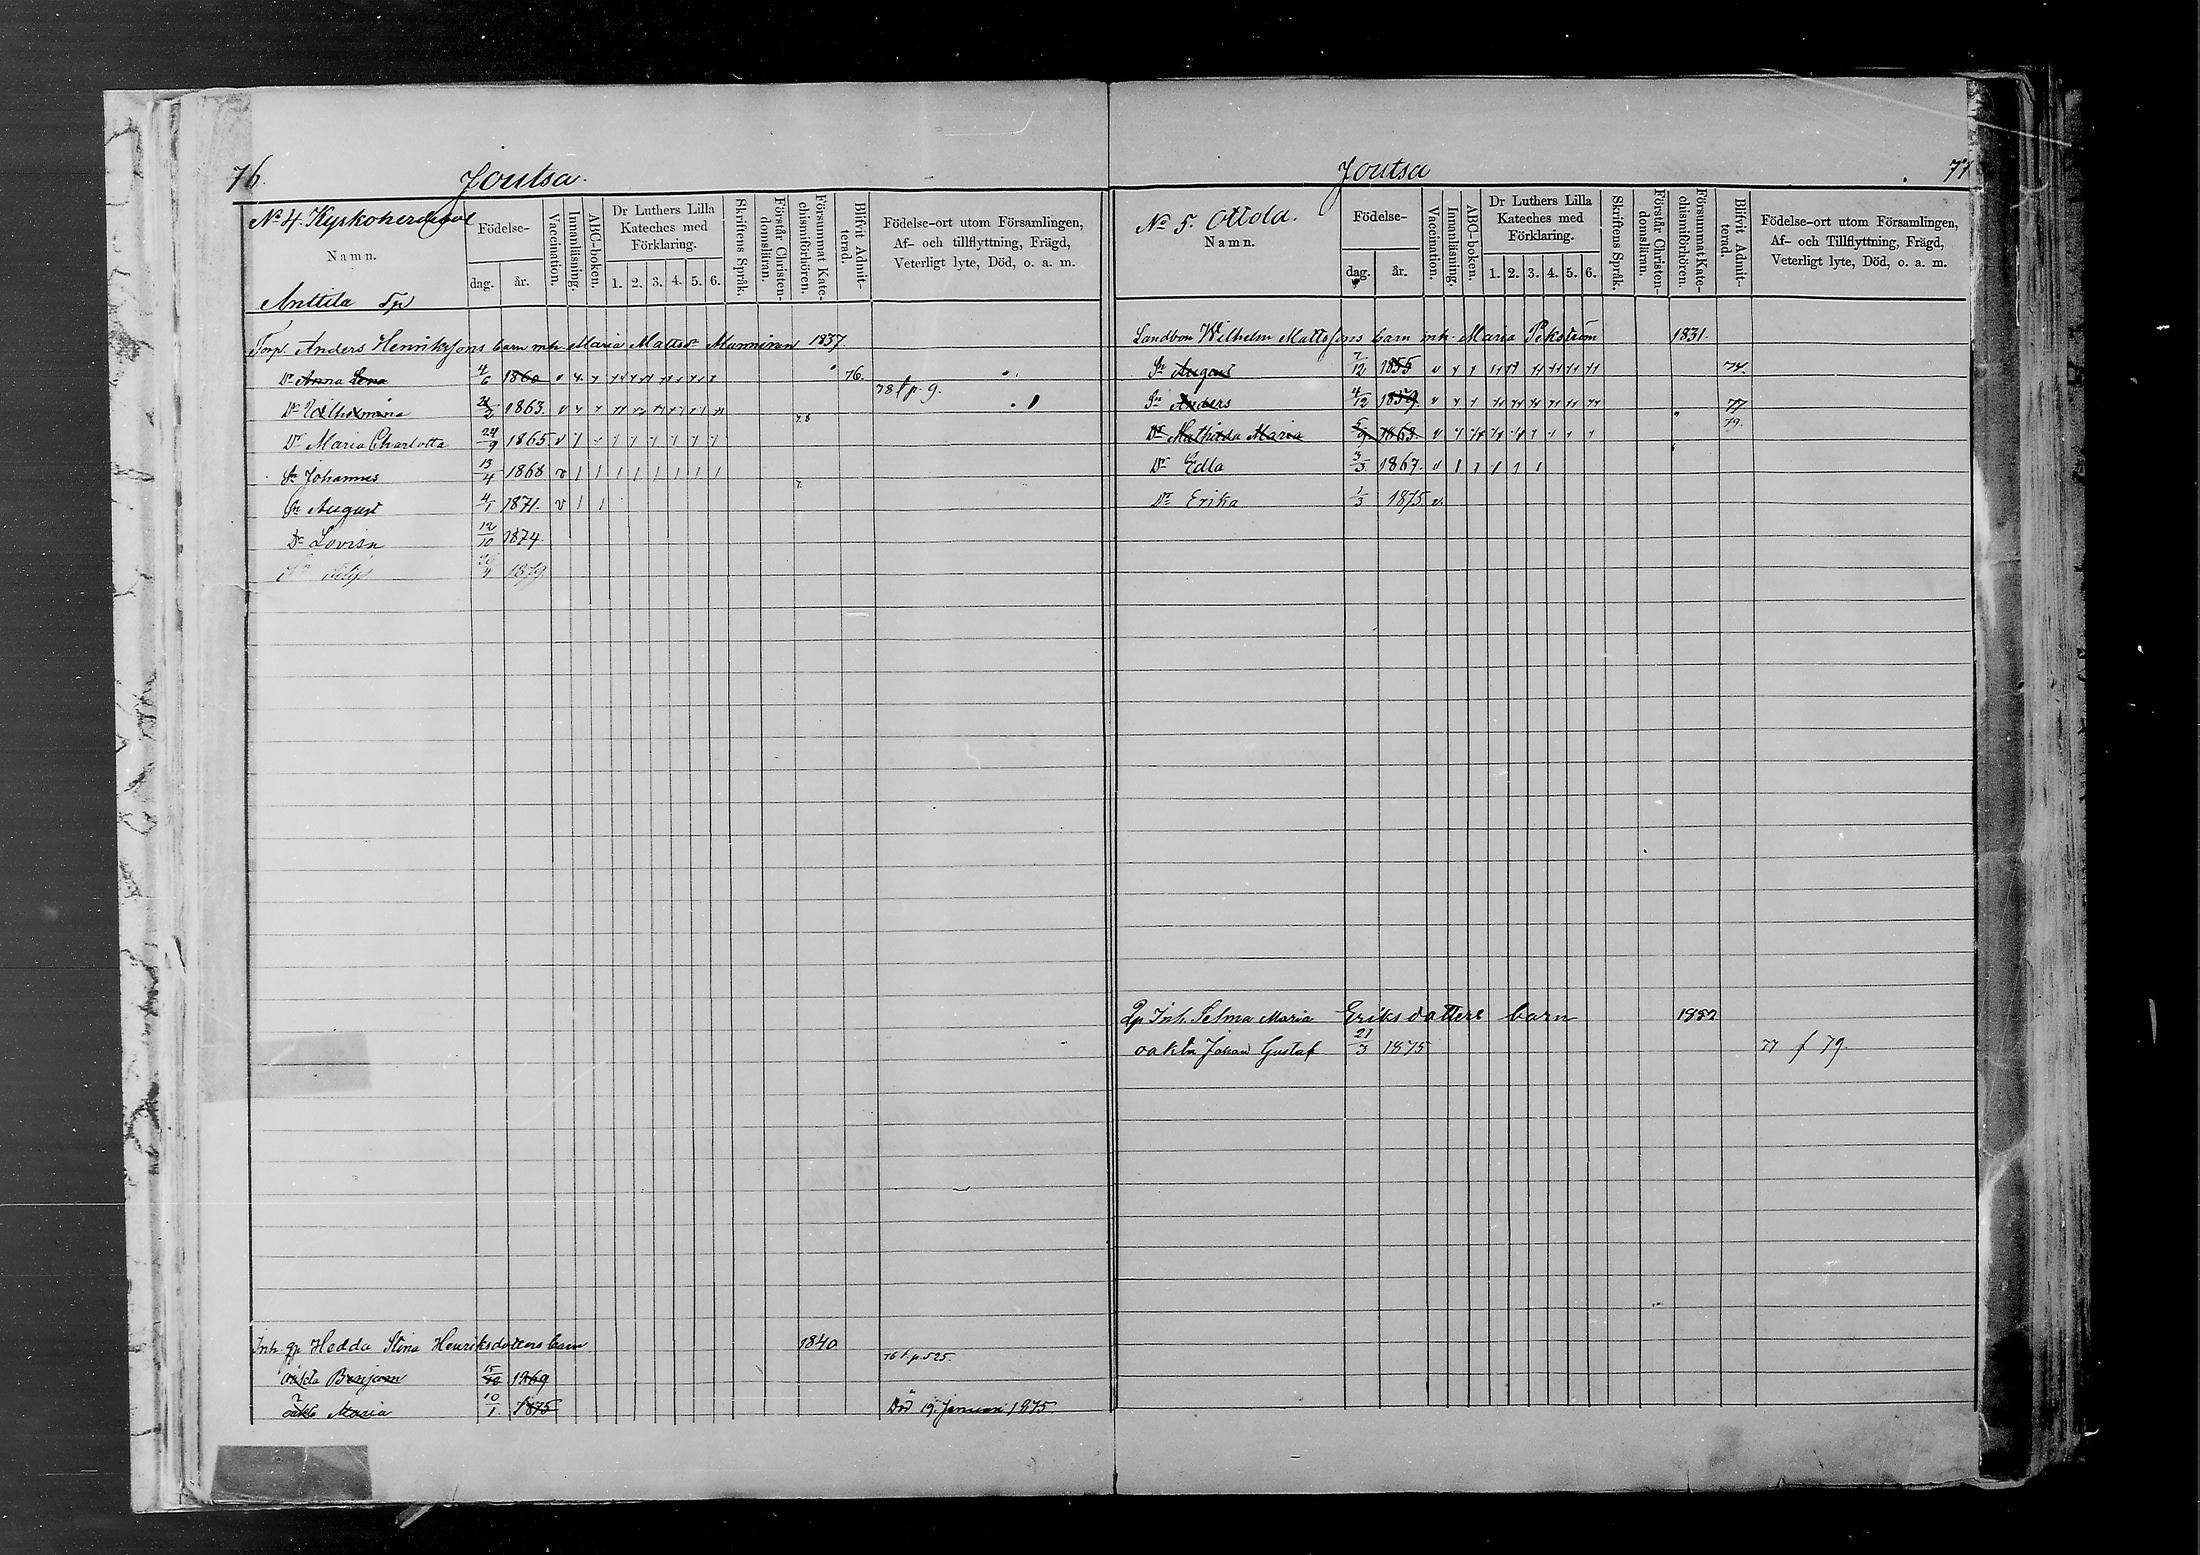 76.
Joutsa.
No 4. Kyrkoherdebol
Namn.
Födelse-
dag.
år.
Vaccination.
Innanläsning.
ABC-boken.
Dr Luthers Lilla Kateches med Förklaring.
1. 2. 3. 4. 5. 6.
Skriftens Språk.
Förstår Christendomsläran.
Försummat Katechismiförhören.
Blifvit Admitterad.
Födelse-ort utom Församlingen,
Af- och tillflyttning, Frägd,
Veterligt lyte, Död, o. a. m.
Anttila Tp
Torp. Anders Henrikssons barn mh. Maria Mattsdr Manninen 1837
Dr Anna Lena 4/6 1860 v 76.
78 f p. 9.
Dr Vilhelmina 2 1863 v
7.8
Dr Maria Charlotta 24/9 1865 v
Sn Johannes 13/4 1868 v
7.
Sn August 4/1 1871. v
Dr Lovisa 12/10 1874.
Sn 1879
Inh. qp Hedda Stina Henriksdotters barn 1840
76 f. p. 525.
oäkta Benjam 15/10 1869
oäkta Maria 10/1. 1875 Död 19 Januari 1875.
Joutsa
77
No 5. Ottola.
Namn.
Födelse-
dag.
år.
Vaccination.
Innanläsning.
ABC-boken.
Dr Luthers Lilla Kateches med Förklaring.
1. 2. 3. 4. 5. 6.
Skriftens Språk.
Förstår Christendomsläran.
Försummat Katechismiförhören.
Blifvit Admitterad.
Födelse-ort utom Församlingen,
Af- och Tillflyttning, Frägd,
Veterligt lyte, Död, o. a. m.
Landbon Wilhelm Mattssons barn mh. Maria Pekström 1831.
Sn August 7/12 1855 v 74.
Sn Anders 4/12 1859. v 77
Dr Mathilda Maria 5/9 1863. v 79.
Dr Edla 3/3 1867. v
Dr Erika 1/3 1875 v.
Qp Inh. Selma Maria Eriksdotters barn 1852
oäkta Johan Gustaf 21/3 1875 77 f 79.